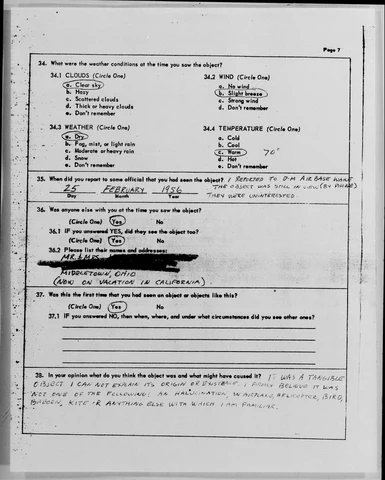 Page 7
34. What were the weather conditions at the time you saw the object?
34.1 CLOUDS (Circle One) 34.2 WIND (Circle One)
a. Clear sky a. No wind
b. Hazy b. Slight breeze
c. Scattered clouds c. Strong wind
d. Thick or heavy clouds d. Don't remember
e. Don't remember
34.3 WEATHER (Circle One) 34.4 TEMPERATURE (Circle One)
a. Dry a. Cold
b. Fog, mist, or light rain b. Cool
c. Moderate or heavy rain c. Warm 70°
d. Snow d. Hot
e. Don't remember e. Don't remember
35. When did you report to some official that you had seen the object? I REPORTED TO D-M AIR BASE WHILE
THE OBJECT WAS STILL IN VIEW (BY PHONE)
25 FEBRUARY 1956 THEY WERE UNINTERESTED.
Day Month Year
36. Was anyone else with you at the time you saw the object?
(Circle One) Yes No
36.1 IF you answered YES, did they see the object too?
(Circle One) Yes No
36.2 Please list their names and addresses:
MR. & MRS.
MIDDLETOWN, OHIO
(NOW ON VACATION IN CALIFORNIA)
37. Was this the first time that you had seen an object or objects like this?
(Circle One) Yes No
37.1 IF you answered NO, then when, where, and under what circumstances did you see other ones?
38. In your opinion what do you think the object was and what might have caused it? IT WAS A TANGIBLE
OBJECT. I CAN NOT EXPLAIN ITS ORIGIN OR I FIRMLY BELIEVE IT WAS
NOT ONE OF THE FOLLOWING: AN HALLUCINATION, AIRPLANE, HELICOPTER, BIRD,
BALLOON, KITE OR ANYTHING ELSE WITH WHICH I AM FAMILIAR.